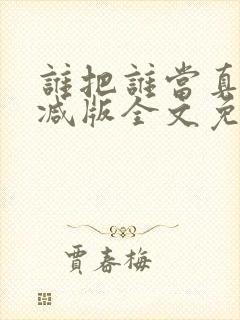 誰把誰當真
減版全文免
賈春梅